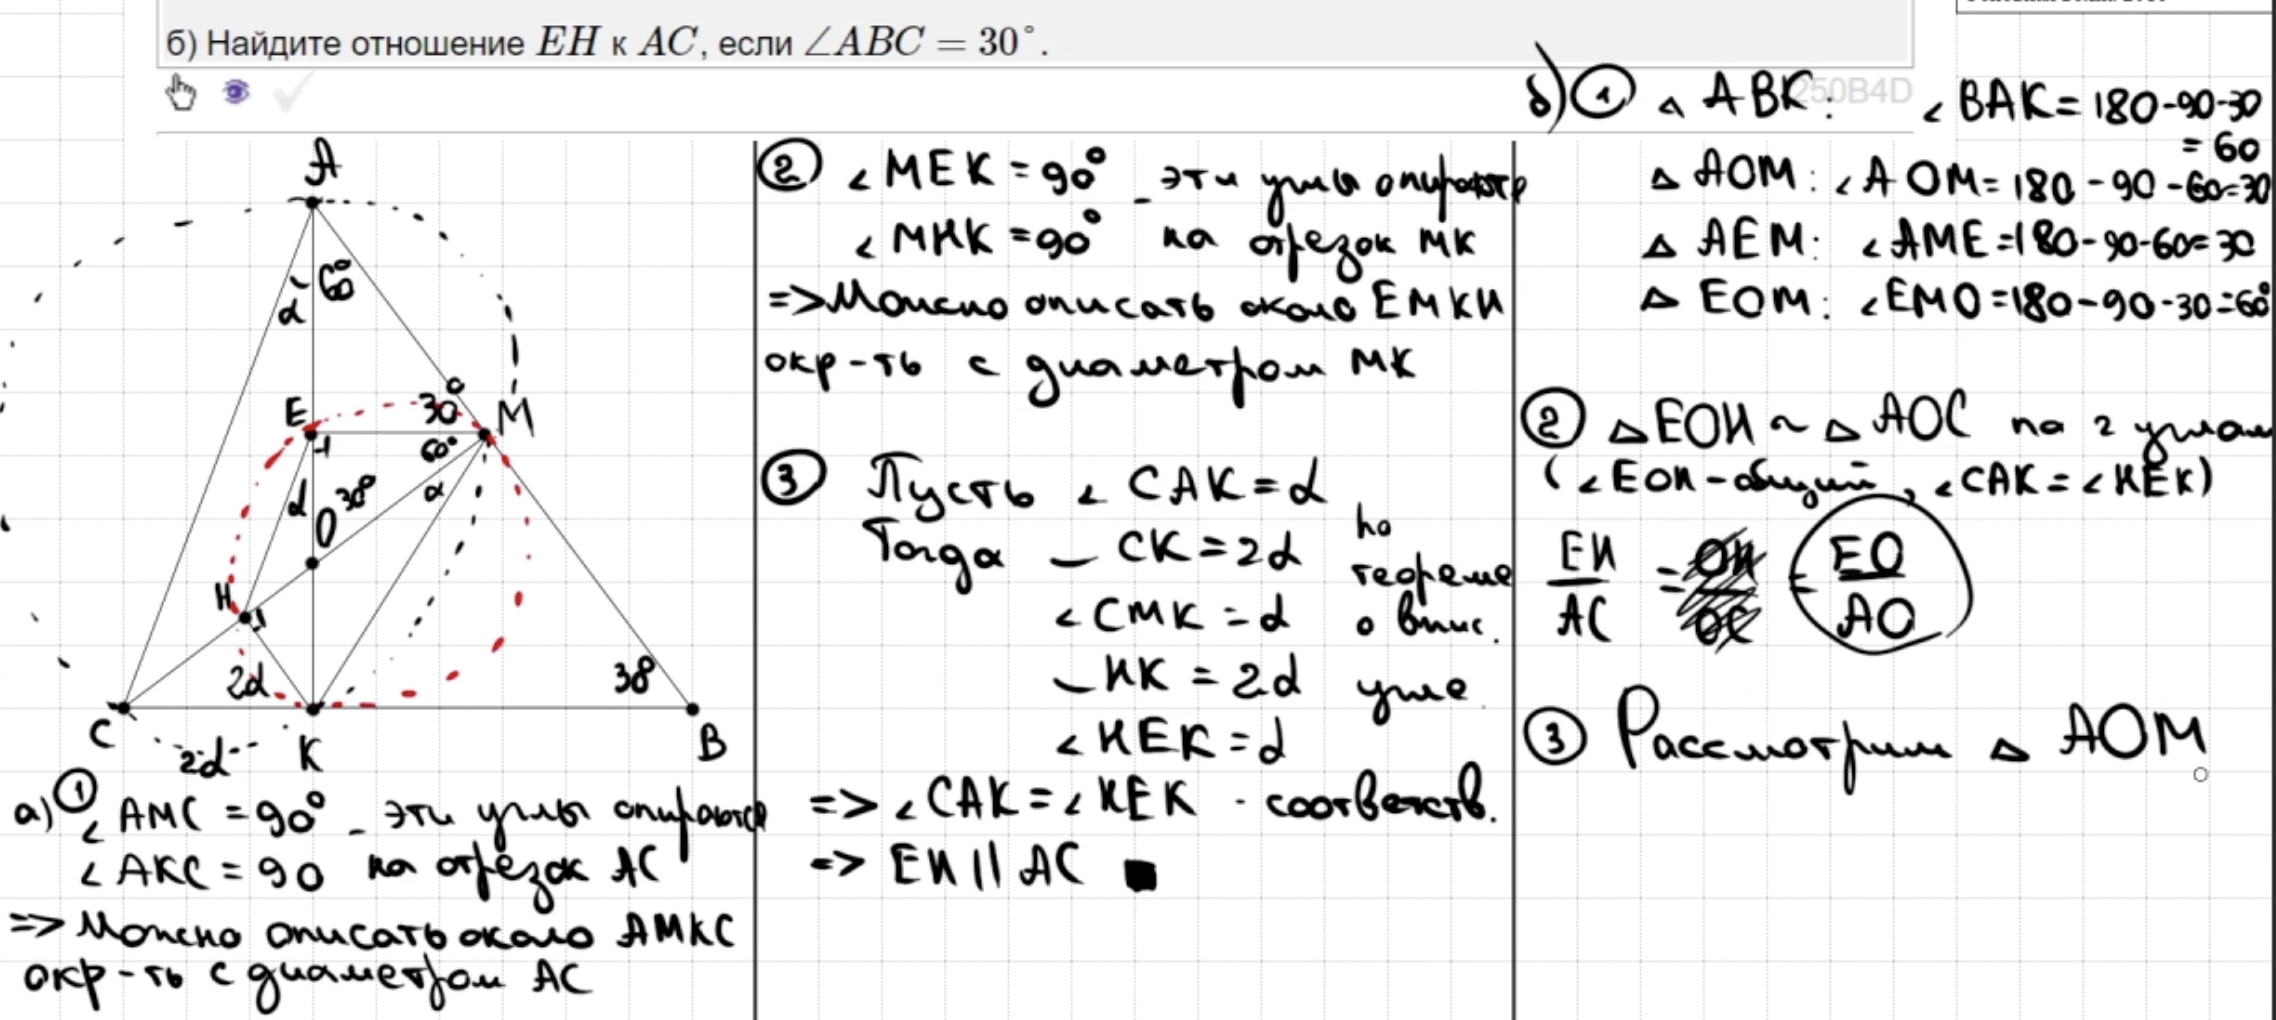 б) Найдите отношение EH к AC, если ∠ABC = 30°.
250B4D
A
α 60°
E 30 M
60°
α 30° α
O
H
2α 30
C K B
2α
а) ① ∠AMC = 90° - эти углы опираются
∠AKC = 90 на отрезок AC
=> Можно описать около AMKC
окр-ть с диаметром AC
② ∠MEK = 90° - эти углы опираются
∠MHK = 90° на отрезок MK
=> Можно описать около EMKH
окр-ть с диаметром MK
③ Пусть ∠CAK = α
Тогда ◡CK = 2α по
теореме
∠CMK = α о впис.
◡HK = 2α угле
∠HEK = α
=> ∠CAK = ∠HEK - соответств.
=> EH || AC ■
б) ① △ABK: ∠BAK = 180-90-30
= 60
△AOM: ∠AOM = 180-90-60=30
△AEM: ∠AME = 180-90-60=30
△EOM: ∠EMO = 180-90-30=60°
② △EOH ~ △AOC по 2 углам
(∠EOH - общий, ∠CAK = ∠HEK)
EH/AC = EO/AO
③ Рассмотрим △AOM